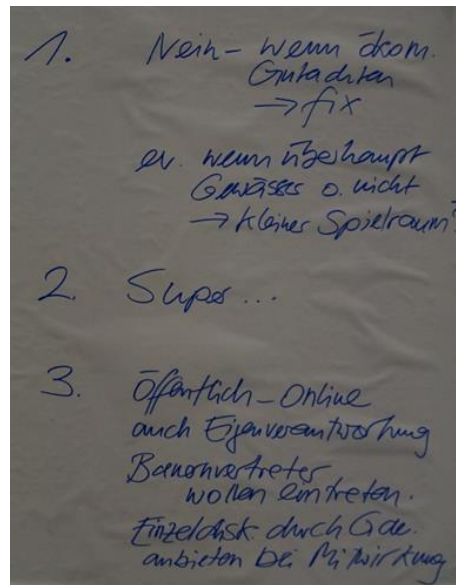 1. Nein – wenn ökom.
Gutachten
→ fix
ev. wenn überhaupt
Gewässer o. nicht
→ kleiner Spielraum?
2. Super...
3. Öffentlich – Online
auch Eigenverantwortung
Bauernvertreter
wollen eintreten.
Einzeldisk. durch Gde.
anbieten bei Mitwirkung